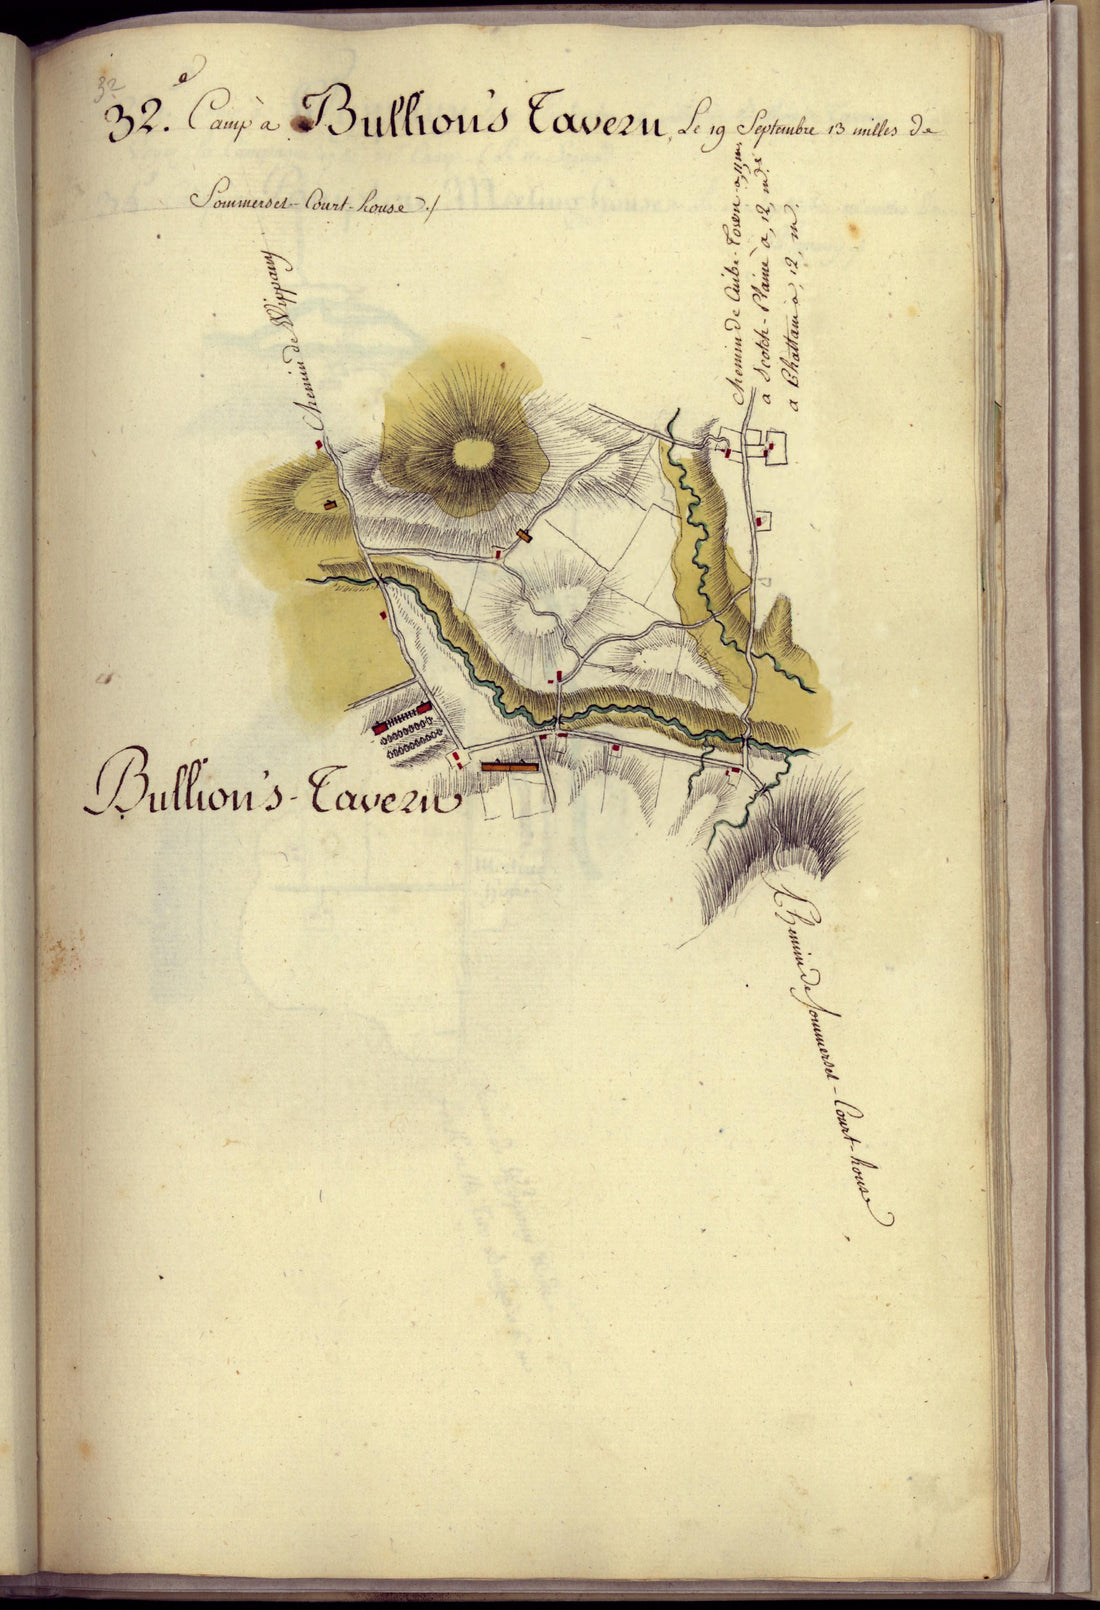 32
32.e Camp à Bullion's Tavern, Le 19 Septembre 13 milles de
Sommerset-Court-house ./
Chemin de Wippany
à Scotch-Plaine à, 12, m.
a Chattam a, 12, m.
Bullion's-Tavern
Chemin de Sommerset-Court-house